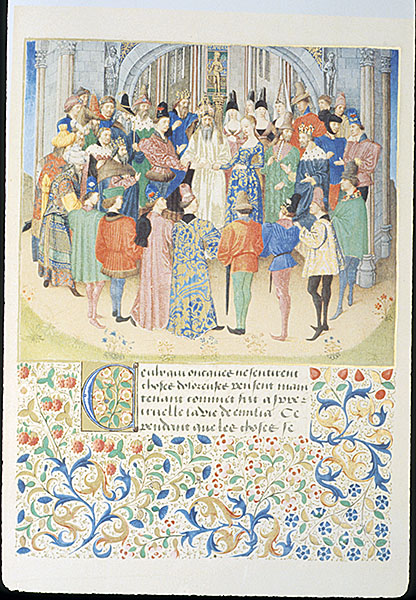 Ceulx qui oncques ne sentirent
choses doloreuses pensent main
tenant comment fut aspre
cruelle la vie de emilia Ce
pendant que les choses se